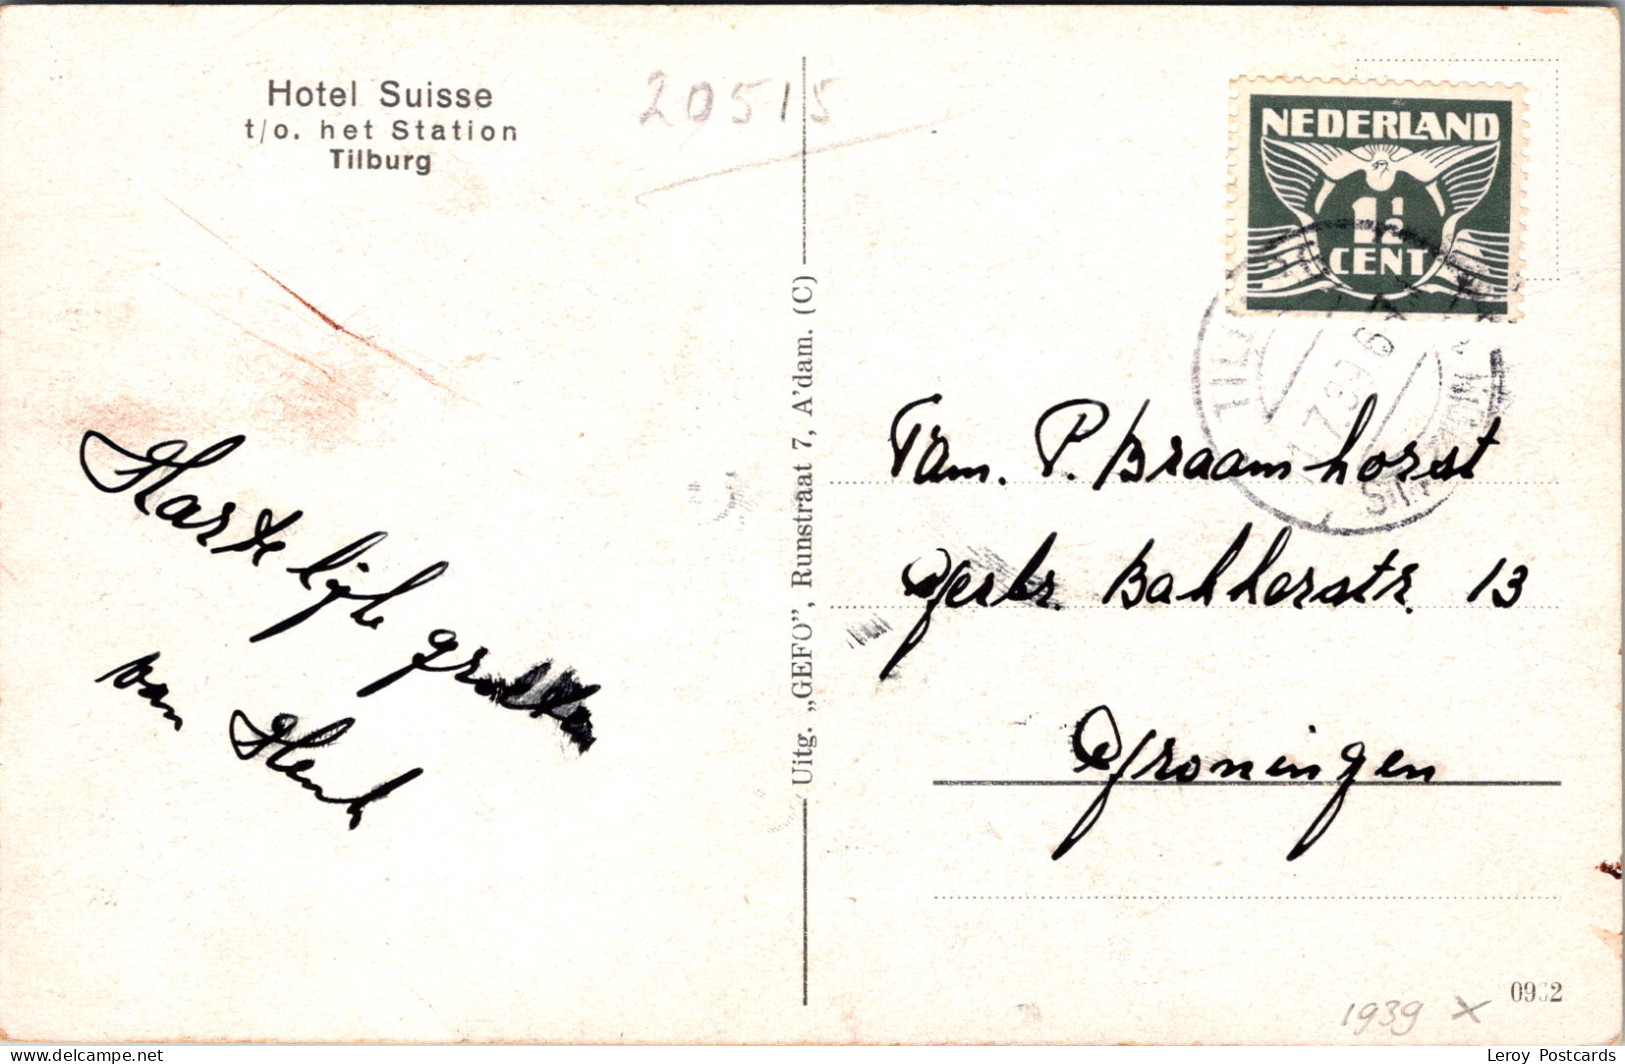 Hotel Suisse
t/o. het Station
Tilburg
20515
NEDERLAND
1½
CENT
Hartelijke groeten
van Henk
Uitg. „GEFO”, Runstraat 7, A'dam. (C)
Fam. P. Braamhorst
Gerbr. Bakkerstr. 13
Groningen
1939 X
Leroy Postcards